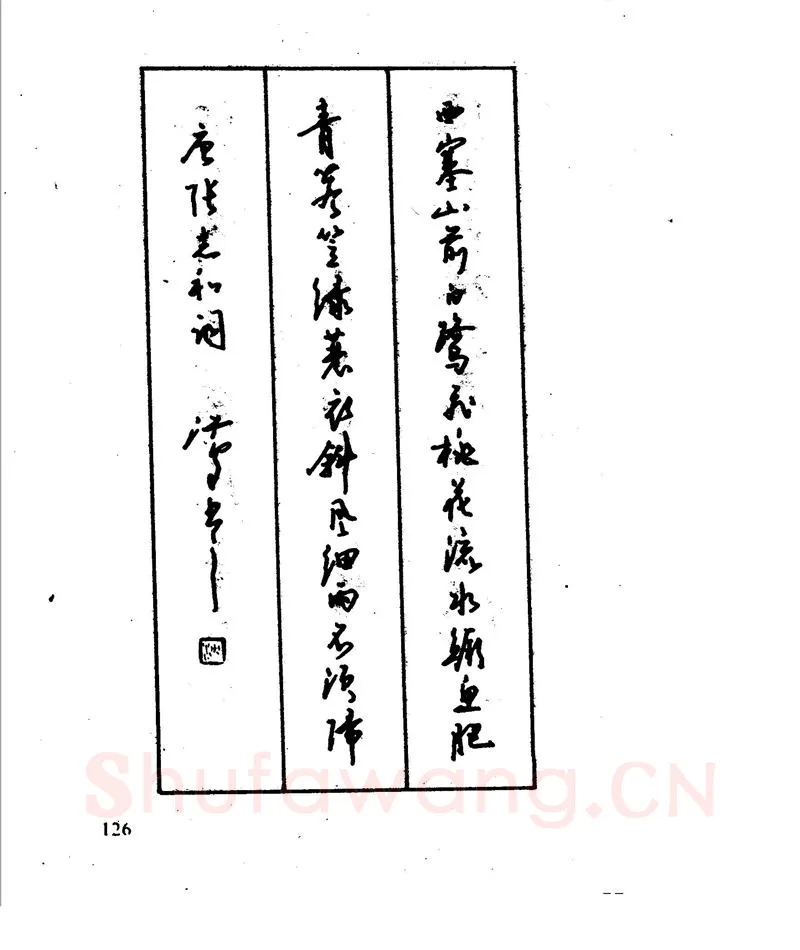 西塞山前白鹭飞桃花流水鳜鱼肥
青箬笠绿蓑衣斜风细雨不须归
唐张志和词 书
126
Shufawang.CN